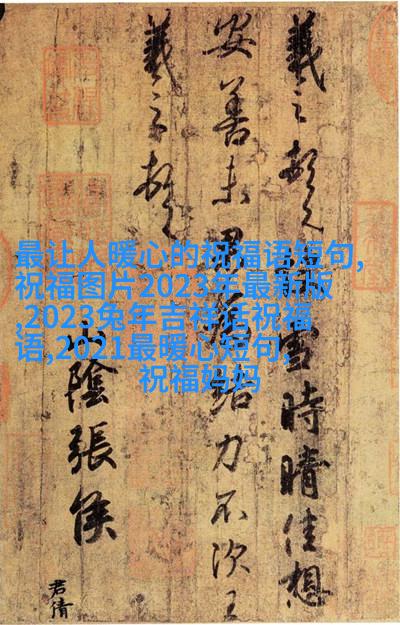 最让人暖心的祝福语短句,
祝福图片2023年最新版
,2023兔年吉祥话祝福
语,2021最暖心短句,
祝福妈妈
羲之頓首雪時晴佳想
安善未果結力不次王
羲之頓首
山陰張侯
君倩